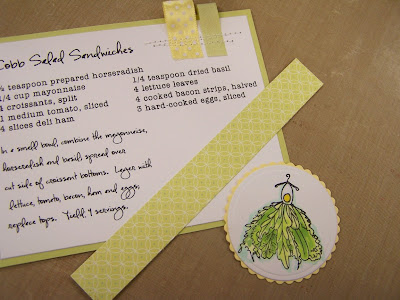 Cobb Salad Sandwiches
teaspoon prepared horseradish
1/4 cup mayonnaise
4 croissants, split
1 medium tomato, sliced
4 slices deli ham
1/4 teaspoon dried basil
4 lettuce leaves
4 cooked bacon strips, halved
3 hard-cooked eggs, sliced
In a small bowl, combine the mayonnaise,
horseradish and basil; spread over
cut side of croissant bottoms. Layer with
lettuce, tomato, bacon, ham and eggs;
replace tops. Yield, 4 servings.